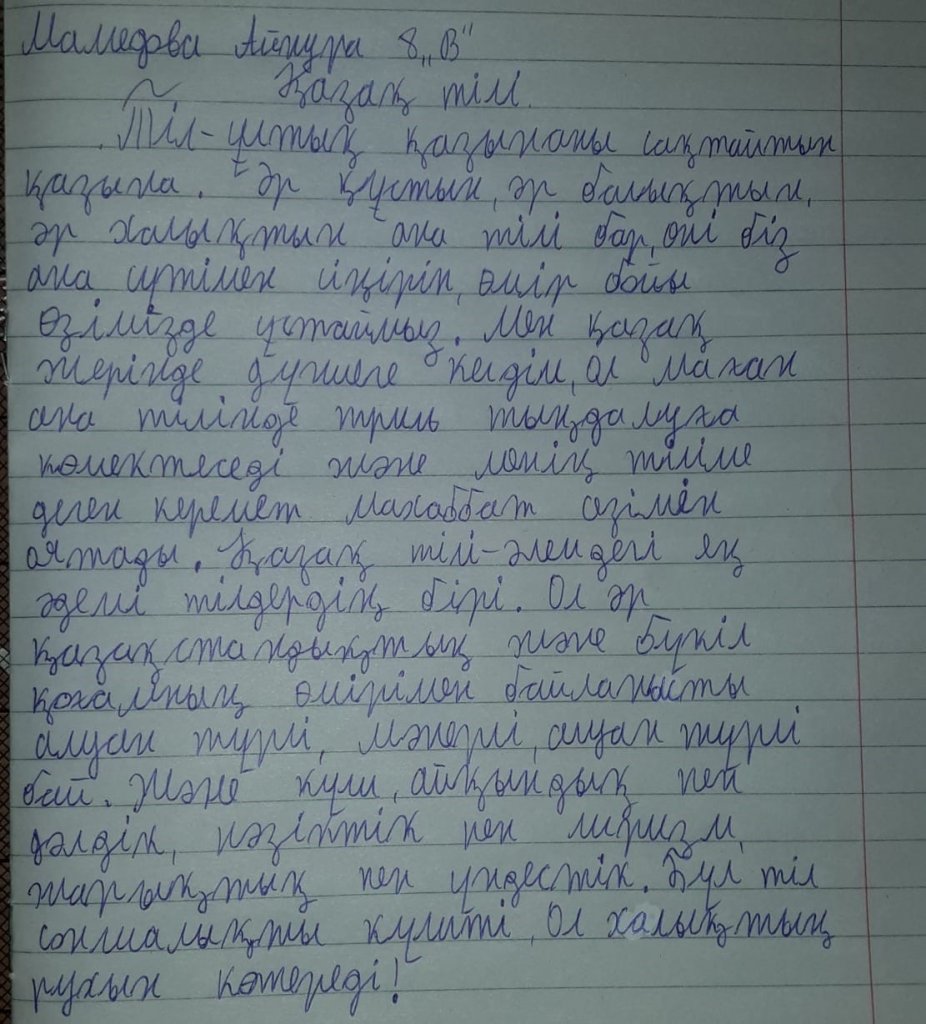 Мамедова Айнура 8 „В"
Қазақ тілі.
Тіл-ұлттық қазынаны сақтайтын
қазына. Әр құстын, әр балықтын,
әр халықтын ана тілі бар, оні біз
ана сүтімен сіңіріп, өмір бойы
өзімізде ұстаймыз. Мен қазақ
жерінде дүниеге келдім, ол маған
ана тілінде тыңдалуха
көмектеседі және менің тіліме
деген керемет махаббат сезімен
оятады. Қазақ тілі-әлемдегі ең
әдемі тілдердің бірі. Ол әр
қазақстандықтың және бүкіл
қоғамның өмірімен байланысты
алуан түрлі, мәнерлі, алуан түрлі
бай. Және күш, айқындық пен
дәлдік, нәзіктік пен лиризм,
жарлықтың пен үндестік. Бұл тіл
соншалықты күшті, Ол халықтың
рухын көтереді!